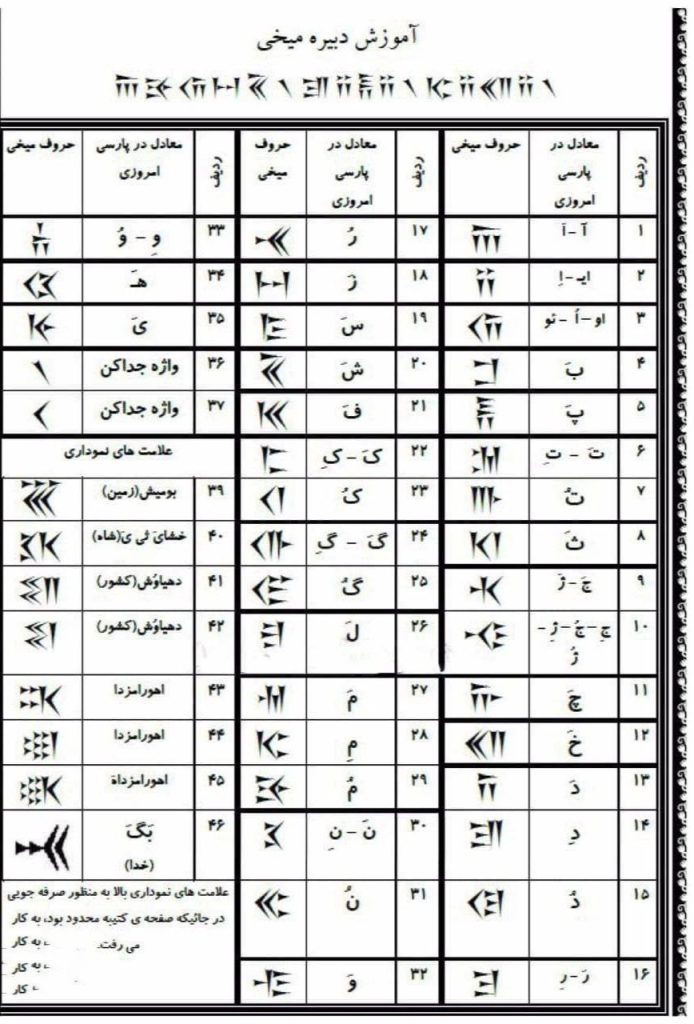 آموزش دبیره میخی
𐎠𐎸𐎢𐏀𐏁𐏐𐎮𐎡𐎱𐎡𐏐𐎷𐎡𐎧𐎡𐏐
ردیف معادل در پارسی امروزی حروف میخی
۱ آ - اَ 𐎠
۲ ایـ - اِ 𐎡
۳ او - اُ - ئو 𐎢
۴ بَ 𐎲
۵ پَ 𐎱
۶ تَ - تِ 𐎫
۷ تُ 𐎬
۸ ثَ 𐎰
۹ جَ - ژَ 𐎩
۱۰ جِ - جُ - ژِ - ژُ 𐎪
۱۱ چَ 𐎨
۱۲ خَ 𐎧
۱۳ دَ 𐎭
۱۴ دِ 𐎮
۱۵ دُ 𐎯
۱۶ رَ - رِ 𐎼
ردیف معادل در پارسی امروزی حروف میخی
۱۷ رُ 𐎽
۱۸ زَ 𐏀
۱۹ سَ 𐎿
۲۰ شَ 𐏁
۲۱ فَ 𐎳
۲۲ کَ - کِ 𐎣
۲۳ کُ 𐎤
۲۴ گَ - گِ 𐎥
۲۵ گُ 𐎦
۲۶ لَ 𐎾
۲۷ مَ 𐎶
۲۸ مِ 𐎷
۲۹ مُ 𐎸
۳۰ نَ - نِ 𐎴
۳۱ نُ 𐎵
۳۲ وَ 𐎺
ردیف معادل در پارسی امروزی حروف میخی
۳۳ وِ - وُ 𐎻
۳۴ هـَ 𐏃
۳۵ یَ 𐎹
۳۶ واژه جداکن 𐏐
۳۷ واژه جداکن
علامت های نموداری
۳۹ بومیش(زمین) 𐏏
۴۰ خشایَ ثی یَ(شاه) 𐏋
۴۱ دهیاوُش(کشور) 𐏎
۴۲ دهیاوُش(کشور) 𐏍
۴۳ اهورامزدا 𐏈
۴۴ اهورامزدا 𐏉
۴۵ اهورامزداه 𐏊
۴۶ بَگَ (خدا) 𐏌
علامت های نموداری بالا به منظور صرفه جویی
در جائیکه صفحه ی کتیبه محدود بود، به کار
می رفت. به کار
به کار
کار